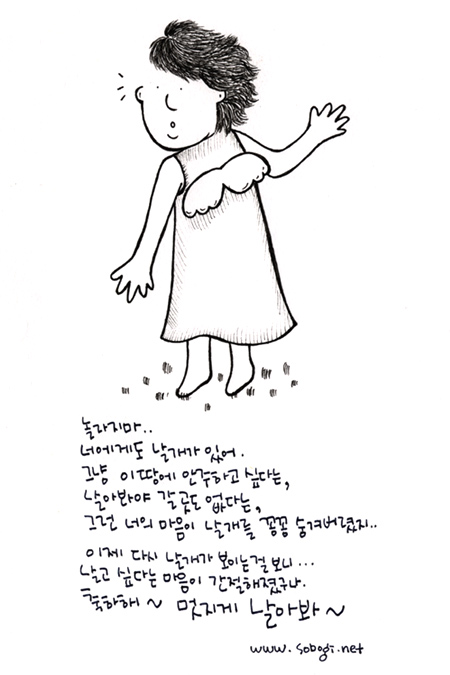 놀라지마..
너에게도 날개가 있어.
그냥 이땅에 안주하고 싶다는,
날아봐야 갈 곳도 없다는,
그런 너의 마음이 날개를 꽁꽁 숨겨버렸지..
이제 다시 날개가 보이는걸 보니...
날고 싶다는 마음이 간절해졌구나.
축하해~ 멋지게 날아봐~
www.sobogi.net